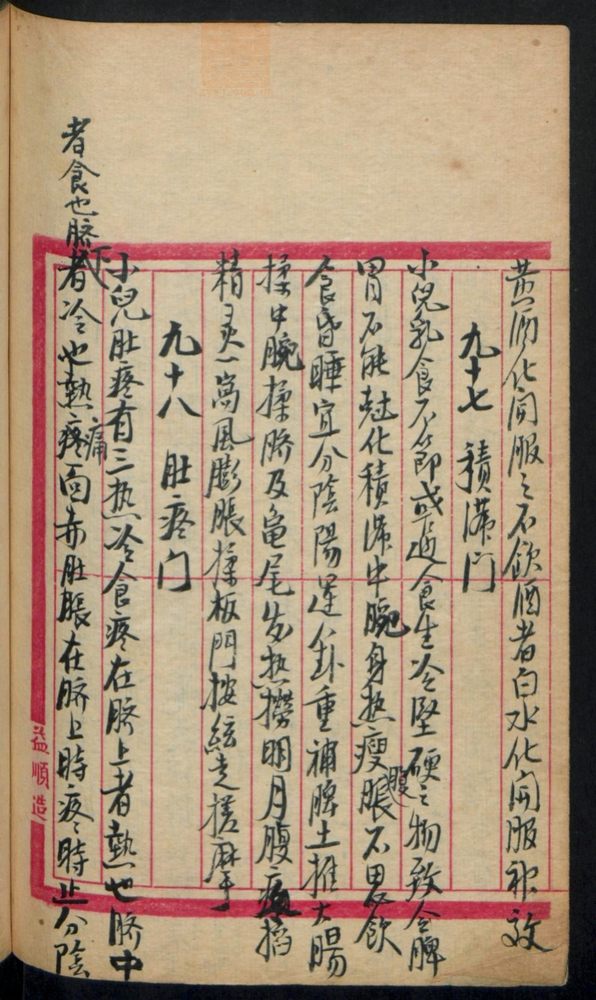 黄酒化開服之不飲酒者白水化開服神效
九十七 積滯門
小兒乳食不節或過食生冷堅硬之物致令脾
胃不能尅化積滯中腕身热瘦腹脹不思飲
食昏睡宜分陰陽運卦重補脾土推大腸
揉中腕揉臍及龟尾发热撈明月腹疼掐
精灵一窩風膨脹揉板門按絃走搓摩手
九十八 肚疼门
小兒肚疼有三热冷食疼在臍上者熱也臍中
者食也臍下者冷也熱痛疼面赤肚脹在臍上時疼時止分陰
益順造